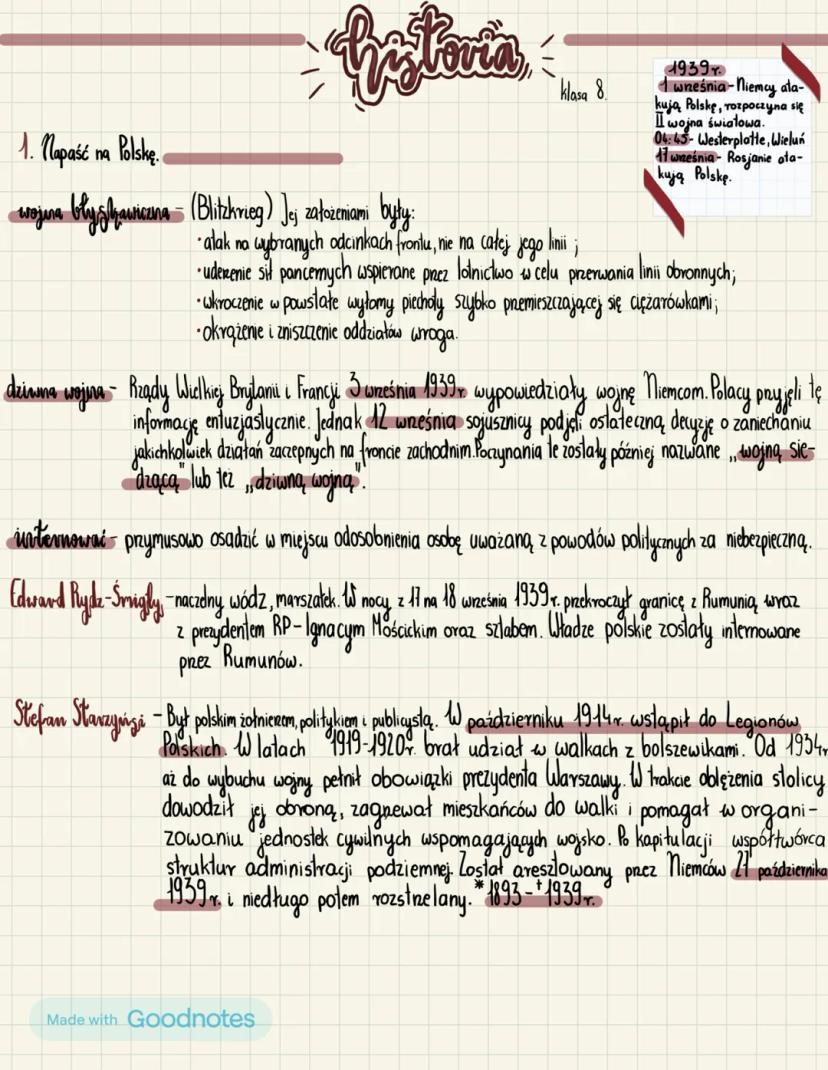 historia
klasa 8.
1939r.
1 września - Niemcy ata-
kują Polskę, rozpoczyna się
II wojna światowa.
04:45 - Westerplatte, Wieluń
17 września - Rosjanie ata-
kują Polskę.
1. Napaść na Polskę.
wojna błyskawiczna - (Blitzkrieg) Jej założeniami były:
· atak na wybranych odcinkach frontu, nie na całej jego linii ;
· uderzenie sił pancernych wspierane przez lotnictwo w celu przerwania linii obronnych;
· wkroczenie w powstałe wyłomy piechoty szybko przemieszczającej się ciężarówkami;
· okrążenie i zniszczenie oddziałów wroga.
dziwna wojna - Rządy Wielkiej Brytanii i Francji 3 września 1939r. wypowiedziały wojnę Niemcom. Polacy przyjęli tę
informację entuzjastycznie. Jednak 12 września sojusznicy podjęli ostateczną decyzję o zaniechaniu
jakichkolwiek działań zaczepnych na froncie zachodnim. Poczynania te zostały później nazwane „wojną sie-
dzącą" lub też „dziwną wojną".
internować - przymusowo osadzić w miejscu odosobnienia osobę uważaną z powodów politycznych za niebezpieczną.
Edward Rydz-Śmigły - naczelny wódz, marszałek. W nocy z 17 na 18 września 1939r. przekroczył granicę z Rumunią wraz
z prezydentem RP - Ignacym Mościckim oraz sztabem. Władze polskie zostały internowane
przez Rumunów.
Stefan Starzyński - Był polskim żołnierzem, politykiem i publicystą. W październiku 1914r. wstąpił do Legionów
Polskich. W latach 1919-1920r. brał udział w walkach z bolszewikami. Od 1934r
aż do wybuchu wojny pełnił obowiązki prezydenta Warszawy. W trakcie oblężenia stolicy
dowodził jej obroną, zagrzewał mieszkańców do walki i pomagał w organi-
zowaniu jednostek cywilnych wspomagających wojsko. Po kapitulacji współtwórca
struktur administracji podziemnej. Został aresztowany przez Niemców 27 października
1939r. i niedługo potem rozstrzelany. *1893 - †1939r.
Made with Goodnotes